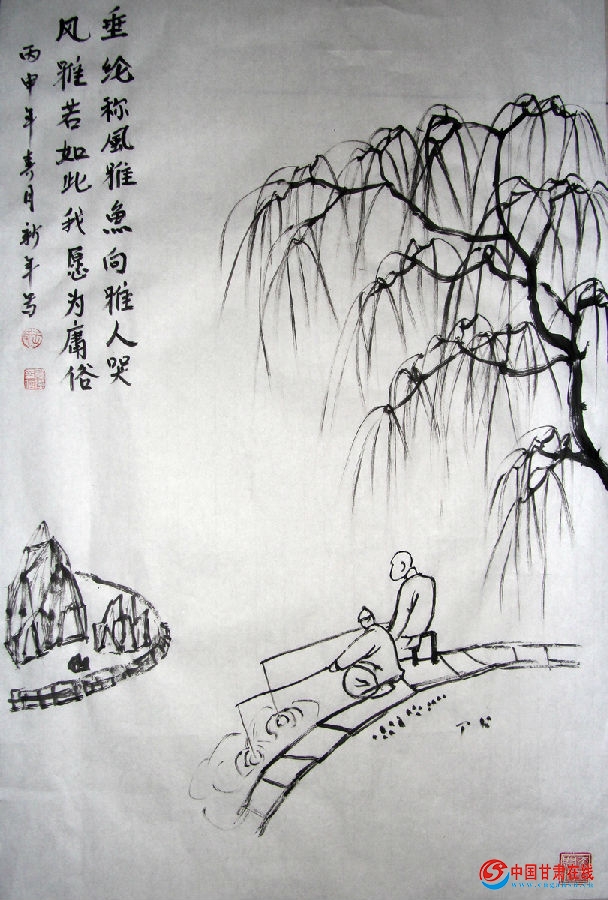 垂纶称風雅魚向雅人哭
风雅若如此我愿为庸俗
丙申年春月新年写
中国甘肃在线